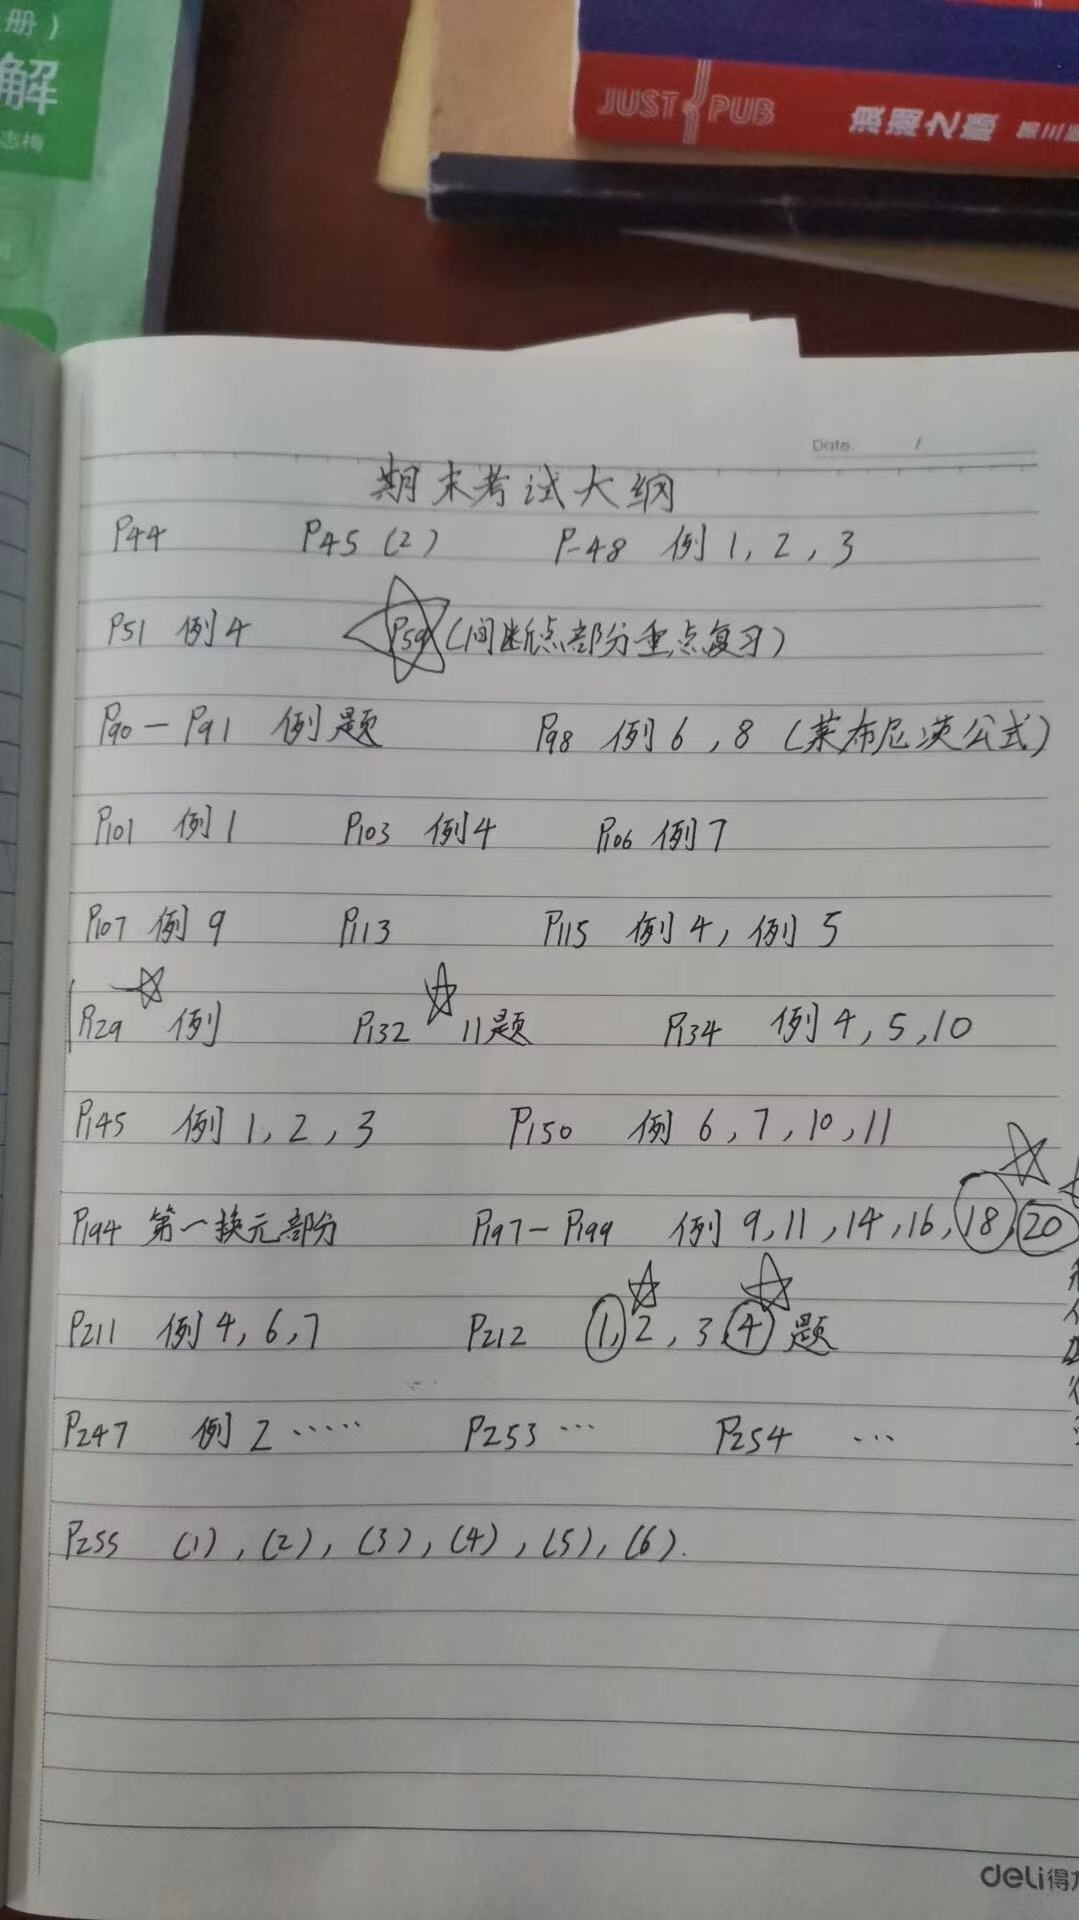 册）
解
志梅
JUST PUB
Date. /
期末考试大纲
P44 P45 (2) P-48 例 1, 2, 3
P51 例4 P59 (间断点部分重点复习)
P90 — P91 例题 P98 例 6, 8 (莱布尼茨公式)
P101 例1 P103 例4 P106 例7
P107 例9 P113 P115 例4, 例5
P129 例 P132 11题 P134 例4, 5, 10
P145 例1, 2, 3 P150 例 6, 7, 10, 11
P194 第一换元部分 P197—P199 例 9, 11, 14, 16, 18, 20
P211 例4, 6, 7 P212 1, 2, 3, 4 题
P247 例2 …… P253 … P254 …
P255 (1), (2), (3), (4), (5), (6).
deli得力